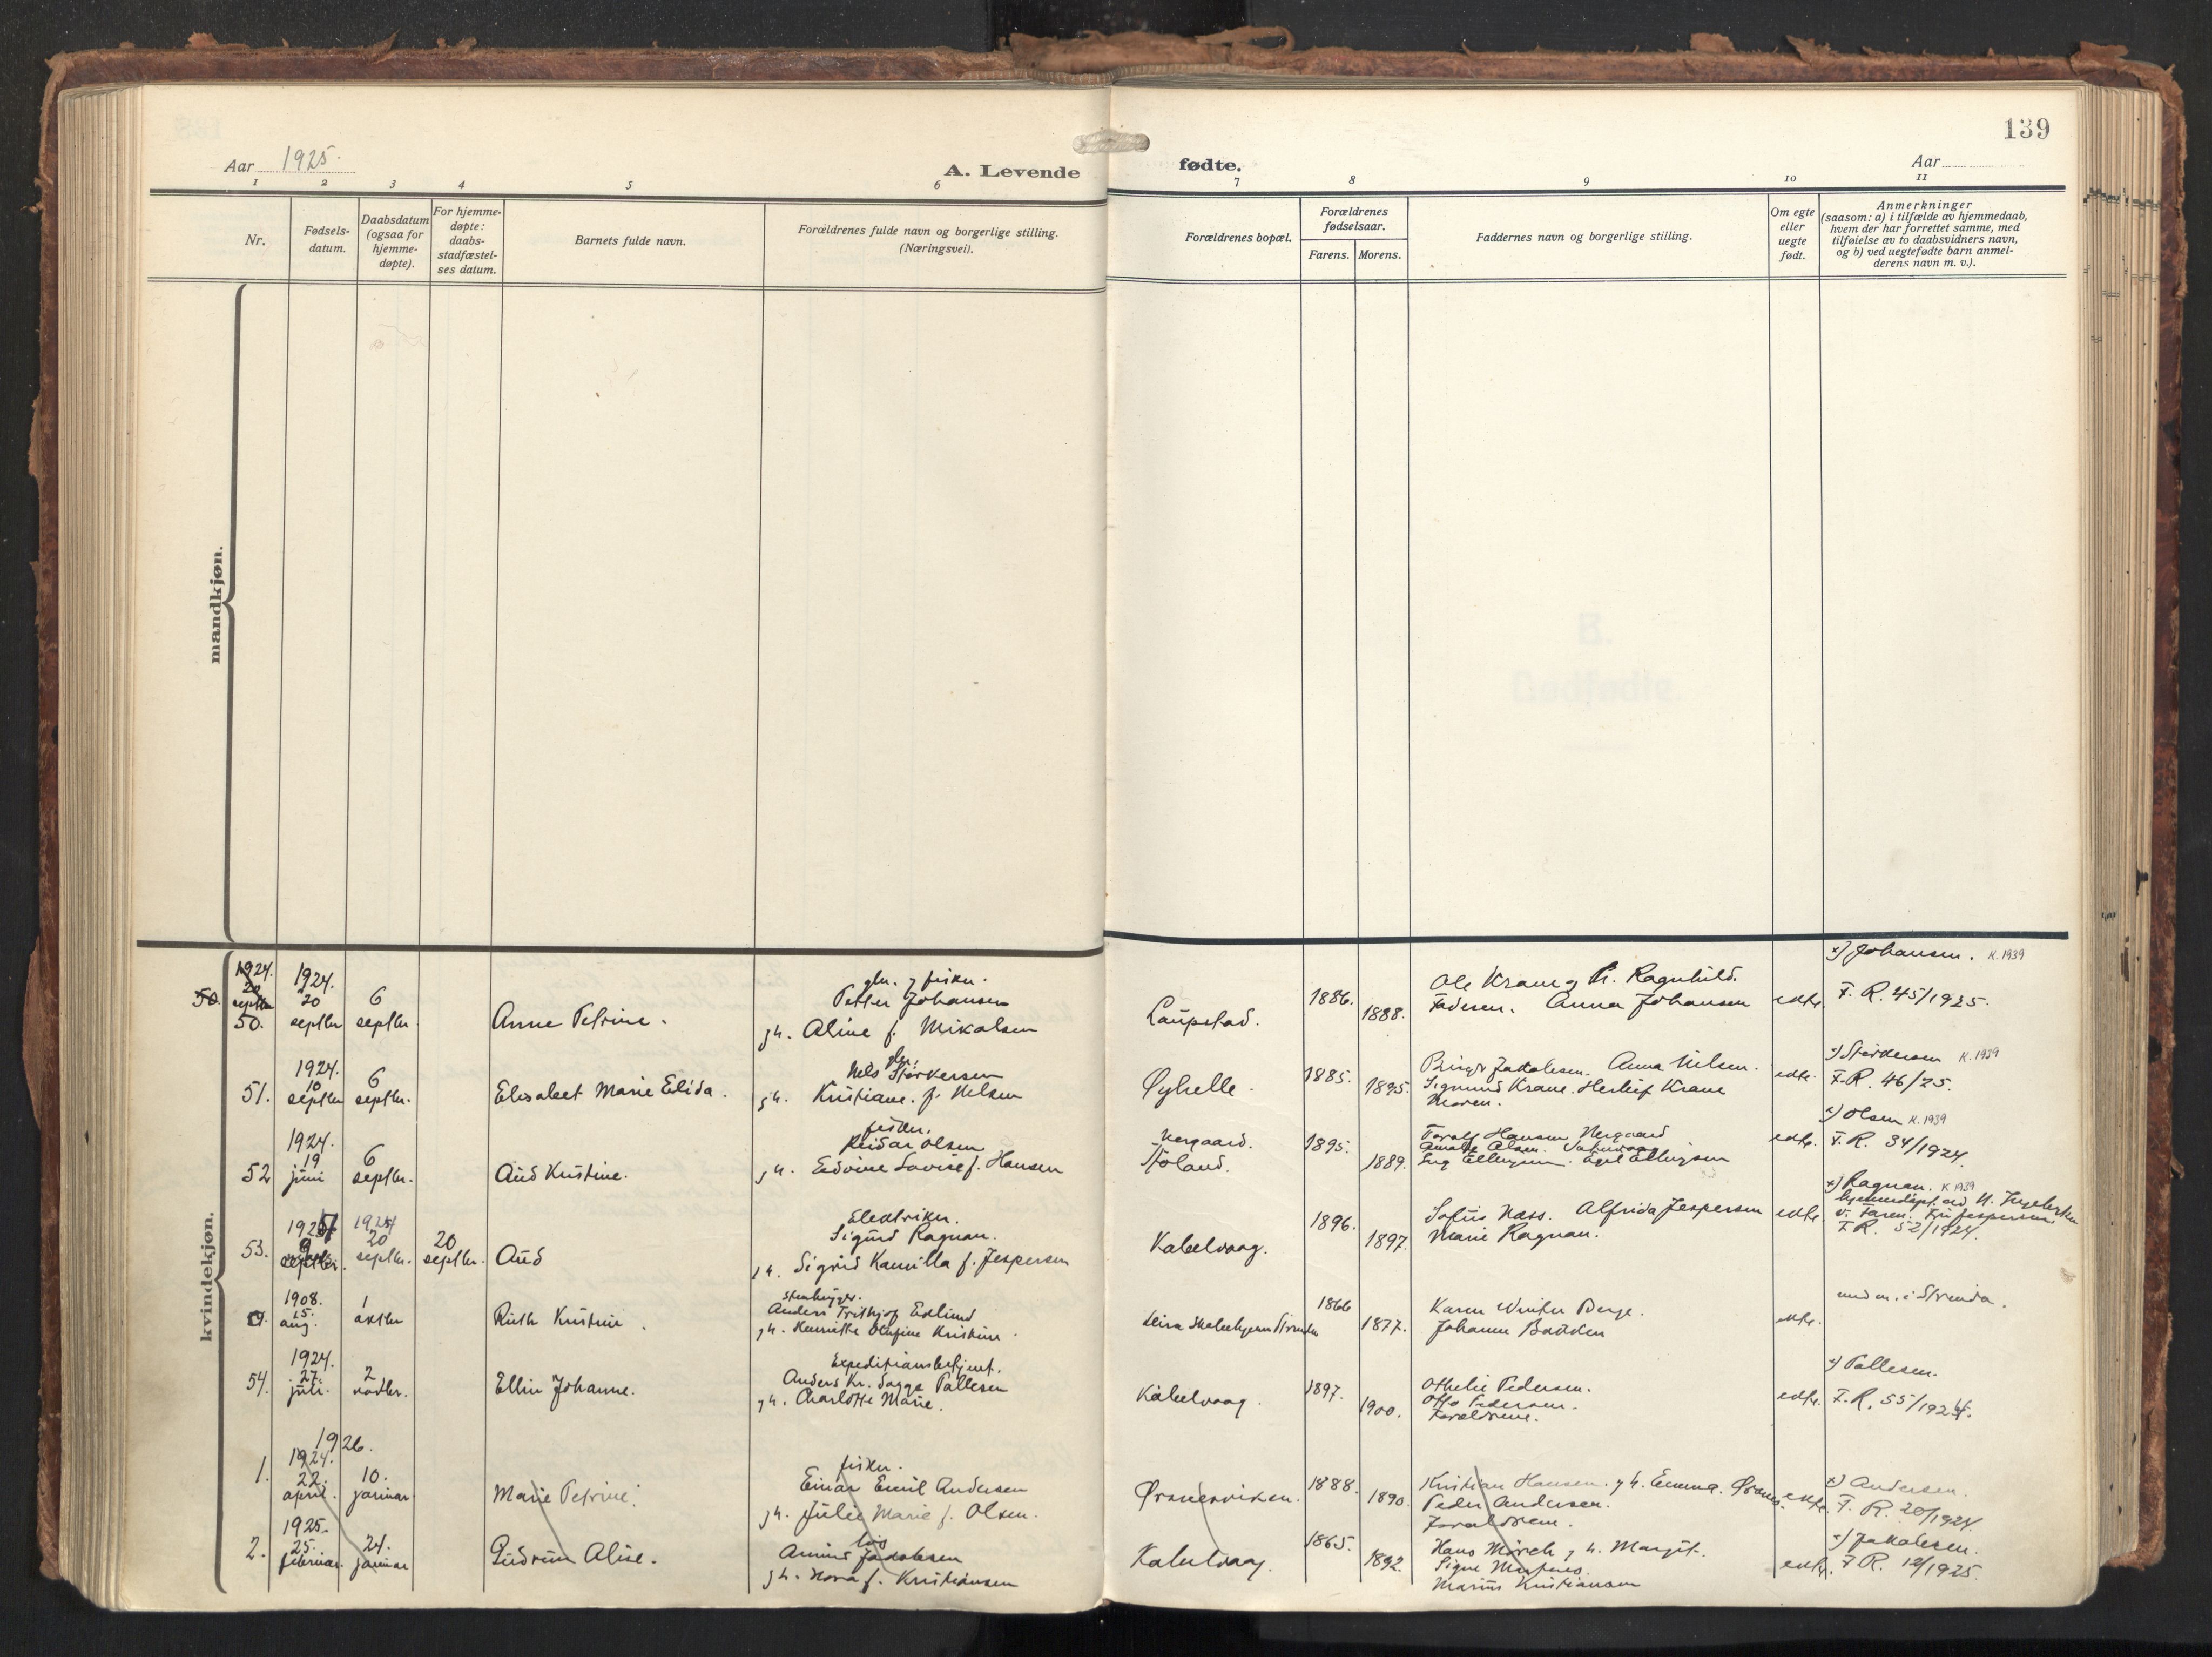 139
Aar 1925.
A. Levende
fødte.
Aar
1 2 3 4 5 6 7 8 9 10 11
Nr.
Fødsels-
datum.
Daabsdatum
(ogsaa for
hjemme-
døpte).
For hjemme-
døpte:
daabs-
stadfæstel-
ses datum.
Barnets fulde navn.
Forældrenes fulde navn og borgerlige stilling.
(Næringsvei).
Forældrenes bopæl.
Forældrenes
fødselsaar.
Farens. Morens.
Faddernes navn og borgerlige stilling.
Om egte
eller
uegte
født.
Anmerkninger
(saasom: a) i tilfælde av hjemmedaab,
hvem der har forrettet samme, med
tilføielse av to daabsvidners navn,
og b) ved uegtefødte barn anmel-
derens navn m. v.).
mandkjøn.
B.
Dødfødte.
kvindekjøn.
1924.
20
septbr
50.
50.
1924.
20
septbr
6
septbr.
Anne Petrine.
gbr. og fisker.
Petter Johansen
og h. Aline f. Mikalsen
Laupstad.
1886.
1888.
Ole Krane og h. Ragnhild.
Faderen. Anna Johansen
ekte.
x) Johansen. K. 1939
F. R. 45/1925.
51.
1924.
10
septbr
6
septbr.
Elisabet Marie Elida.
gbr.
Nels Størkersen
og h. Kristiane f. Nelsen
Øyhelle.
1885.
1895.
Birger Jakobsen. Anna Nilsen.
Sigmund Krane. Herleif Krane
Moren.
ekte.
x) Størkersen K. 1939
F.R. 46/25.
52
1924.
19
juni
6
septbr.
Aud Kristine.
fisker.
Reidar Olsen
og h. Edvine Lovise f. Hansen
Nergaard.
Støland.
1895.
1889.
Toralf Hansen Nergaard
ekte.
x) Olsen K. 1939
F. R. 34/1924.
53.
9
septbr.
1924
20
septbr.
20
septbr.
Aud
Elektriker.
Sigurd Ragnan.
og h. Sigrid Kamilla f. Jespersen
Kabelvaag.
1896.
1897.
Sofus Næss. Alfrida Jespersen
Marie Ragnan.
ekte.
x) Ragnan. K 1939
hjemmedøpt av
v. Faren. Fru Jespersen
F R. 52/1924.
1908.
15.
aug.
1
oktbr
Ruth Kristine.
Stenhugger.
Anders Frithjof Edlund
og h. Henriette Olufine Kristine.
1866
1877.
Karen Winter Berge.
Johanne Badden
ekte.
i Strinda.
54.
1924.
27.
juli.
2
novbr.
Ellin Johanne.
Expeditionsbetjent.
Anders Kr. Saggo Tollesen
og h. Charlotte Marie.
Kabelvaag.
1897.
1900.
Othelie Pedersen.
Otto Pedersen.
Forældrene.
ekte.
x) Tollesen.
F.R. 55/1924.
1926.
1.
1924.
22.
april.
10.
januar
Marie Petrine.
fisker.
Einar Emil Andersen
og h. Julie Marie f. Olsen.
Ørsnesviken.
1888.
1890.
Kristian Hansen. og h. Emma. Ørsnes.
Peder Andersen.
Forældrene.
ekte.
x) Andersen.
F. R. 20/1924.
2.
1925.
25.
februar.
24.
januar
Gudrun Alise.
los
Jakobsen
og h. Nora f. Kristiansen
Kabelvaag.
1865.
1892.
Hans Mørch og h. Margit.
Signe
Marius Kristiansen
ekte.
x) Jakobsen.
F R. 12/1925.